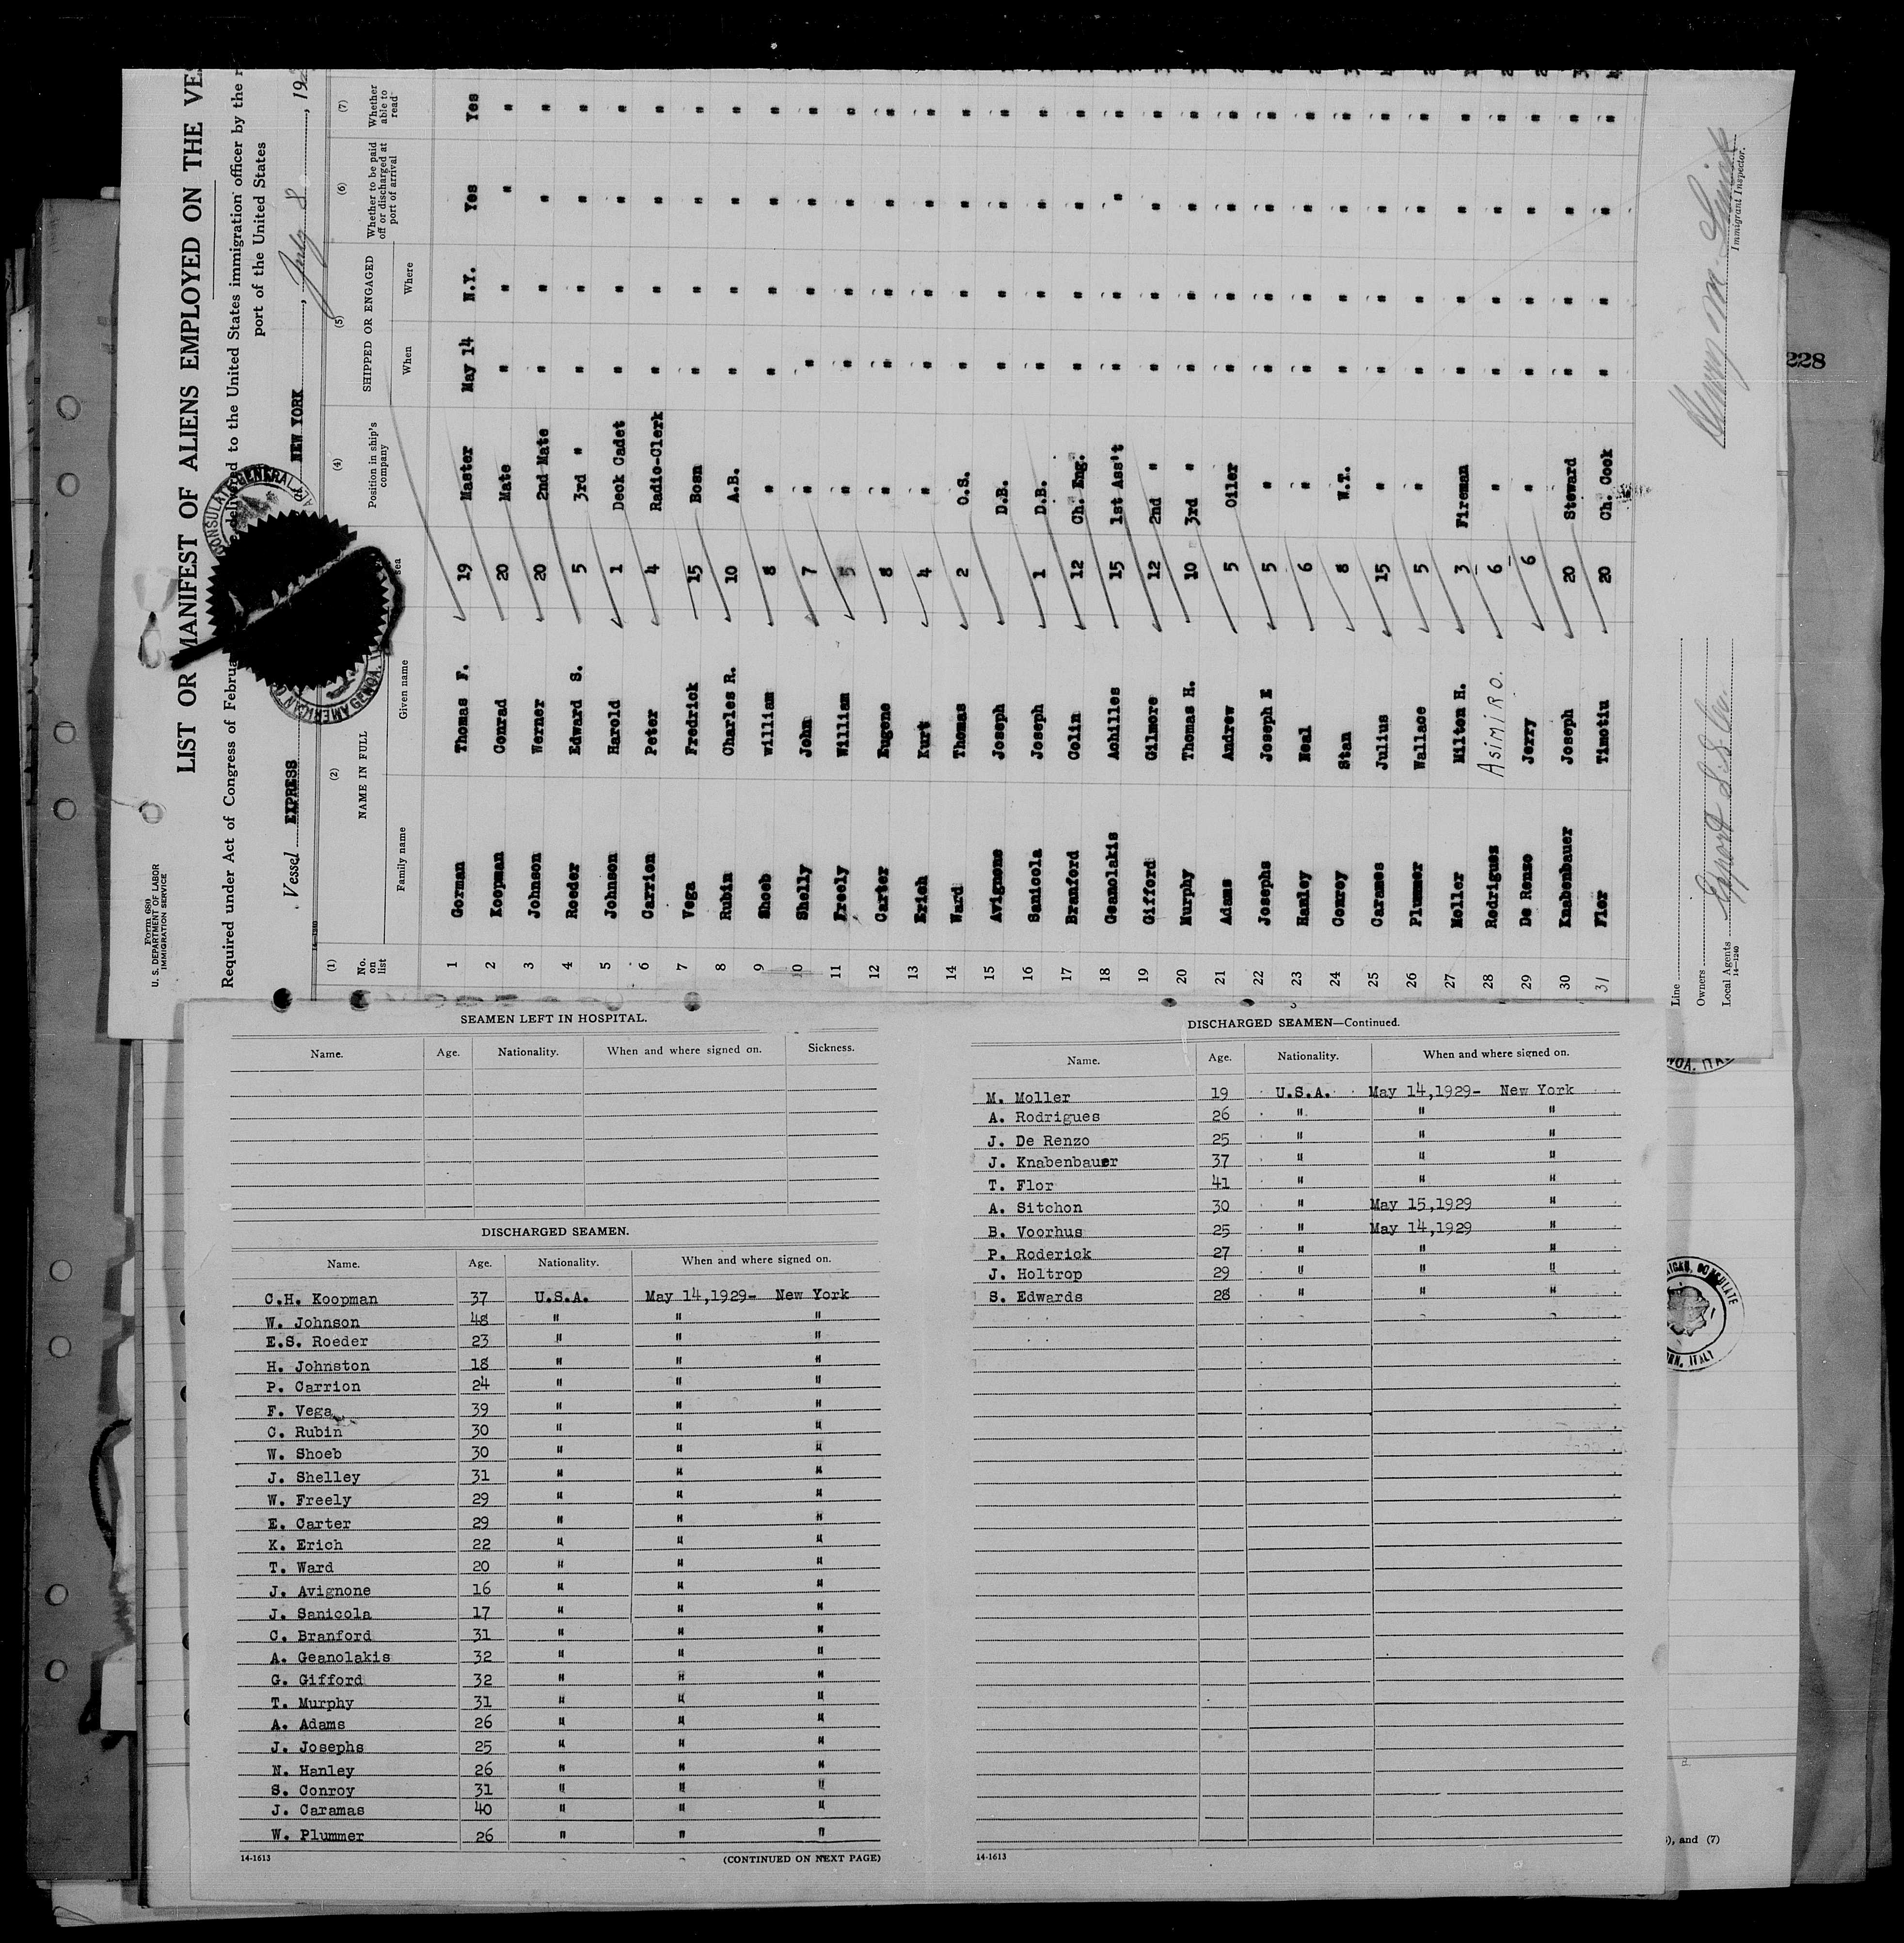 Form 680
U. S. DEPARTMENT OF LABOR
IMMIGRATION SERVICE
LIST OR MANIFEST OF ALIENS EMPLOYED ON THE
Required under Act of Congress of delivered to the United States immigration officer by the
port of the United States
Vessel EXPRESS NEW YORK, July 8, 19
(1) (2) (4) (5) (6) (7)
No. on list NAME IN FULL Position in ship's company SHIPPED OR ENGAGED Whether to be paid off or discharged at port of arrival Whether able to read
Family name Given name sea When Where
1 Gorman Thomas F. 19 Master May 14 N.Y. Yes Yes
2 Koopman Conrad 20 Mate " " " "
3 Johnson Werner 20 2nd Mate " " " "
4 Roeder Edward S. 5 3rd " " " " "
5 Johnson Harold 1 Deck Cadet " " " "
6 Carrion Peter 4 Radio-Clerk " " " "
7 Vega Fredrick 15 Bosn " " " "
8 Rubin Charles R. 10 A.B. " " " "
9 Shoeb william 8 " " " " "
10 Shelly John 7 " " " " "
11 Freely William 5 " " " " "
12 Carter Eugene 8 " " " " "
13 Erich Kurt 4 " " " " "
14 Ward Thomas 2 O.S. " " " "
15 Avignone Joseph D.B. " " " "
16 Sanicola Joseph 1 D.B. " " " "
17 Branford Colin 12 Ch. Eng. " " " "
18 Geanolakis Achilles 15 1st Ass't " " " "
19 Gifford Gilmore 12 2nd " " " " "
20 Murphy Thomas H. 10 3rd " " " " "
21 Adams Andrew 5 Oiler " " " "
22 Josephs Joseph E 5 " " " " "
23 Hanley Neal 6 " " " " "
24 Conroy Stan 8 W.T. " " " "
25 Carames Julius 15 " " " " "
26 Plummer Wallace 5 " " " " "
27 Moller Milton H. 3 Fireman " " " "
28 Rodrigues ASIMIRO. 6 " " " " "
29 De Renzo Jerry 6 " " " " "
30 Knabenbauer Joseph 20 Steward " " " "
31 Flor Timotiu 20 Ch. Cook " " " "
Line
Owners
Local Agents Export S.S. Co.
14-1240
Immigrant Inspector.
228
SEAMEN LEFT IN HOSPITAL.
Name. Age. Nationality. When and where signed on. Sickness.
DISCHARGED SEAMEN.
Name. Age. Nationality. When and where signed on.
C.H. Koopman 37 U.S.A. May 14,1929- New York
W. Johnson 48 " " "
E.S. Roeder 23 " " "
H. Johnston 18 " " "
P. Carrion 24 " " "
F. Vega 39 " " "
C. Rubin 30 " " "
W. Shoeb 30 " " "
J. Shelley 31 " " "
W. Freely 29 " " "
E. Carter 29 " " "
K. Erich 22 " " "
T. Ward 20 " " "
J. Avignone 16 " " "
J. Sanicola 17 " " "
C. Branford 31 " " "
A. Geanolakis 32 " " "
G. Gifford 32 " " "
T. Murphy 31 " " "
A. Adams 26 " " "
J. Josephs 25 " " "
N. Hanley 26 " " "
S. Conroy 31 " " "
J. Caramas 40 " " "
W. Plummer 26 " " "
14-1613 (CONTINUED ON NEXT PAGE)
DISCHARGED SEAMEN—Continued.
Name. Age. Nationality. When and where signed on.
M. Moller 19 U.S.A. May 14,1929- New York
A. Rodrigues 26 " " "
J. De Renzo 25 " " "
J. Knabenbauer 37 " " "
T. Flor 41 " " "
A. Sitchon 30 " May 15,1929 "
B. Voorhus 25 " May 14,1929 "
P. Roderick 27 " " "
J. Holtrop 29 " " "
S. Edwards 28 " " "
14-1613
, and (7)